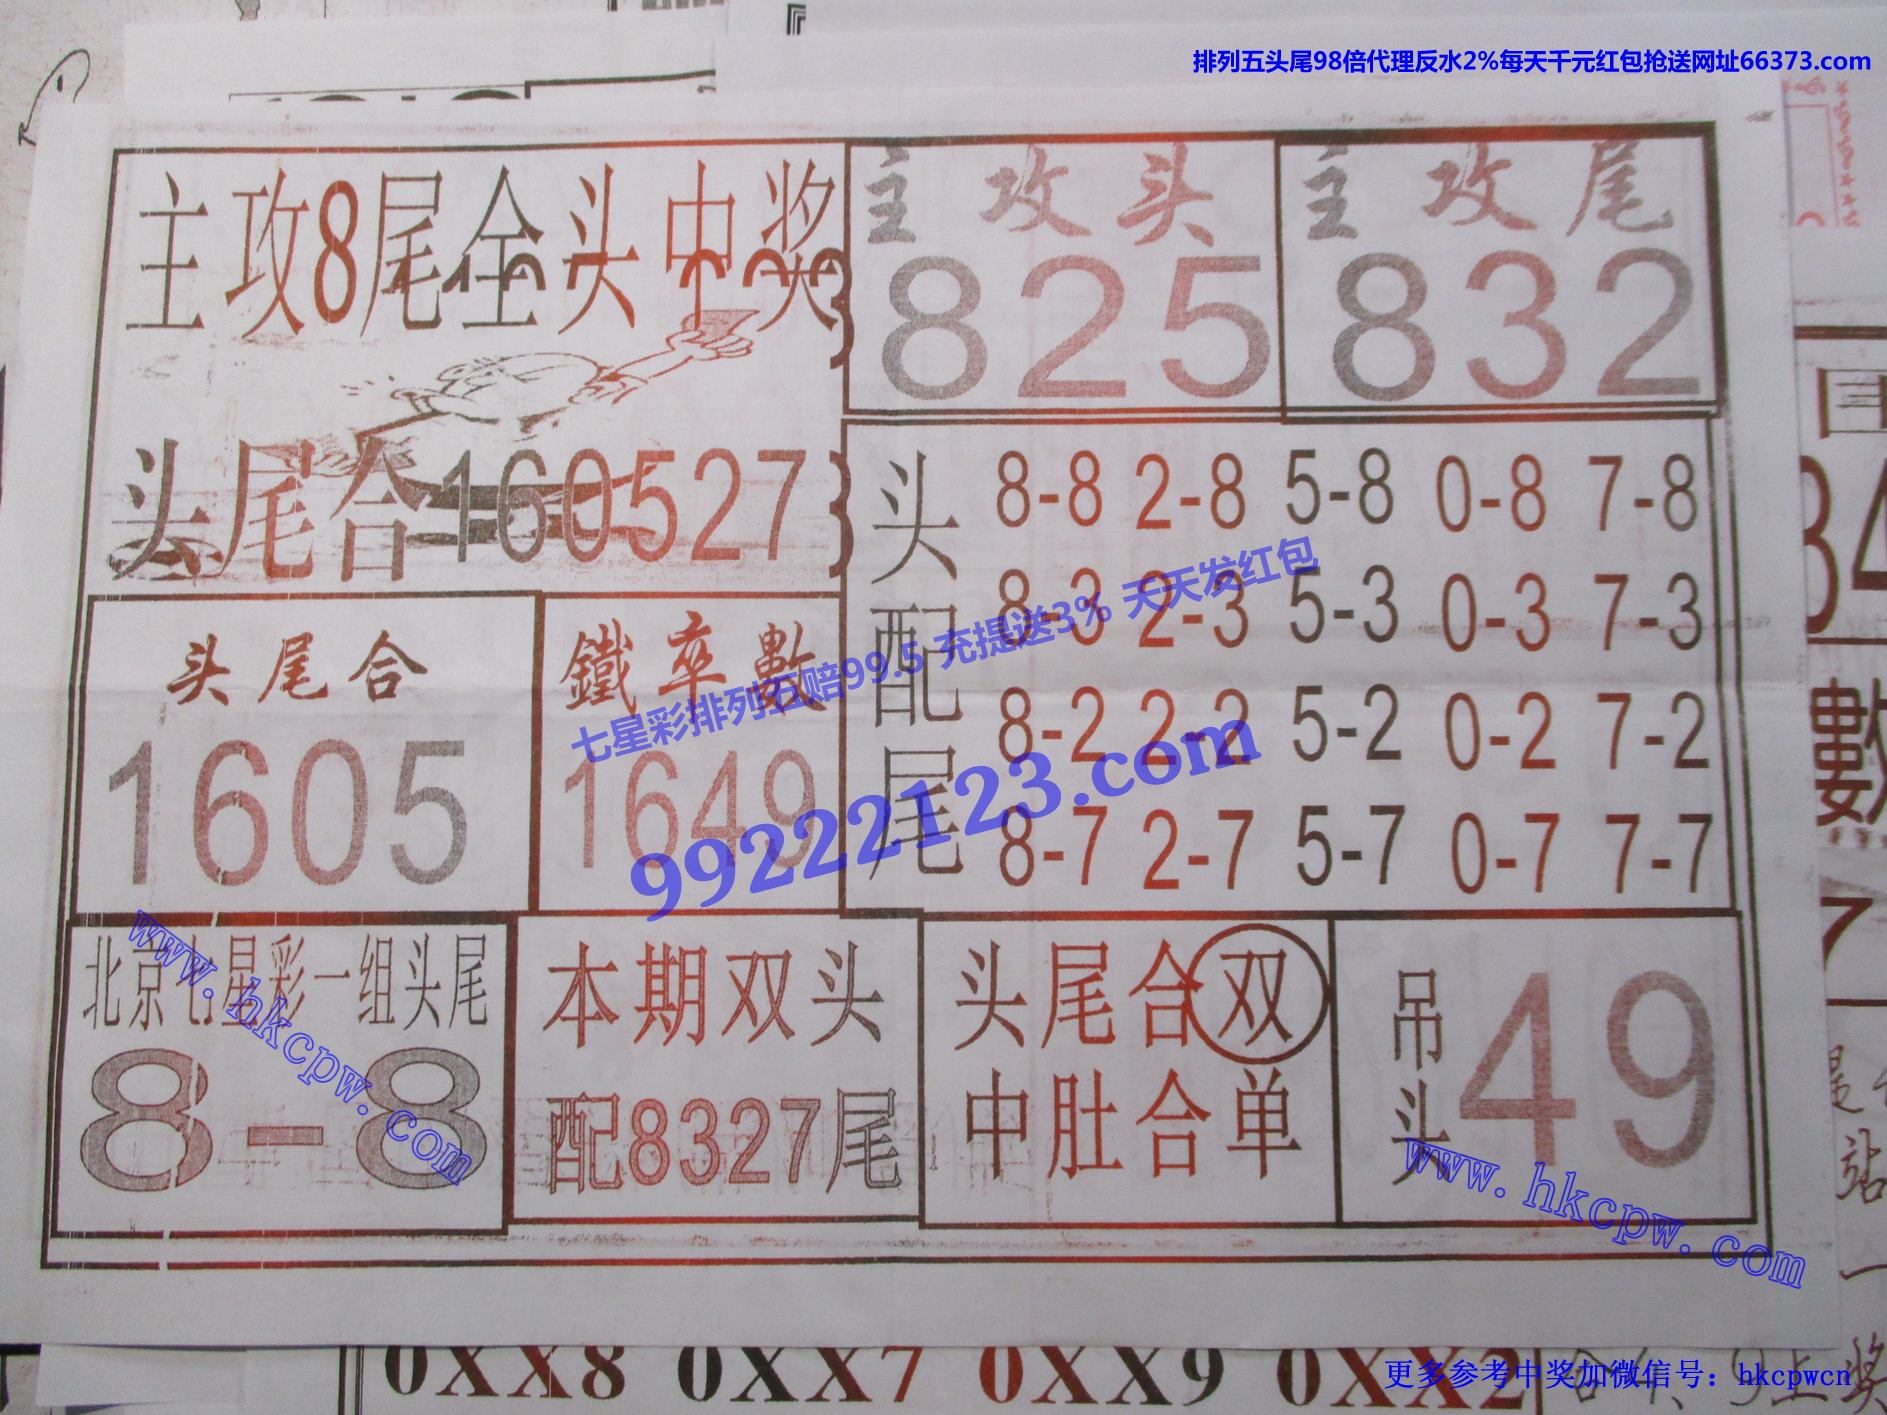 排列五头尾98倍代理反水2%每天千元红包抢送网址66373.com
主攻8尾全头中奖
头尾合160527
主攻头
825
主攻尾
832
头配尾
8-8 2-8 5-8 0-8 7-8
8-3 2-3 5-3 0-3 7-3
8-2 2-2 5-2 0-2 7-2
8-7 2-7 5-7 0-7 7-7
头尾合
1605
鐵卒數
1649
七星彩排列五赔99.5 充提送3% 天天发红包
99222123.com
北京七星彩一组头尾
8-8
本期双头
配8327尾
头尾合双
中肚合单
吊头
49
www.hkcpw.com
www.hkcpw.com
數
0XX8 0XX7 0XX9 0XX2
更多参考中奖加微信号：hkcpwcn